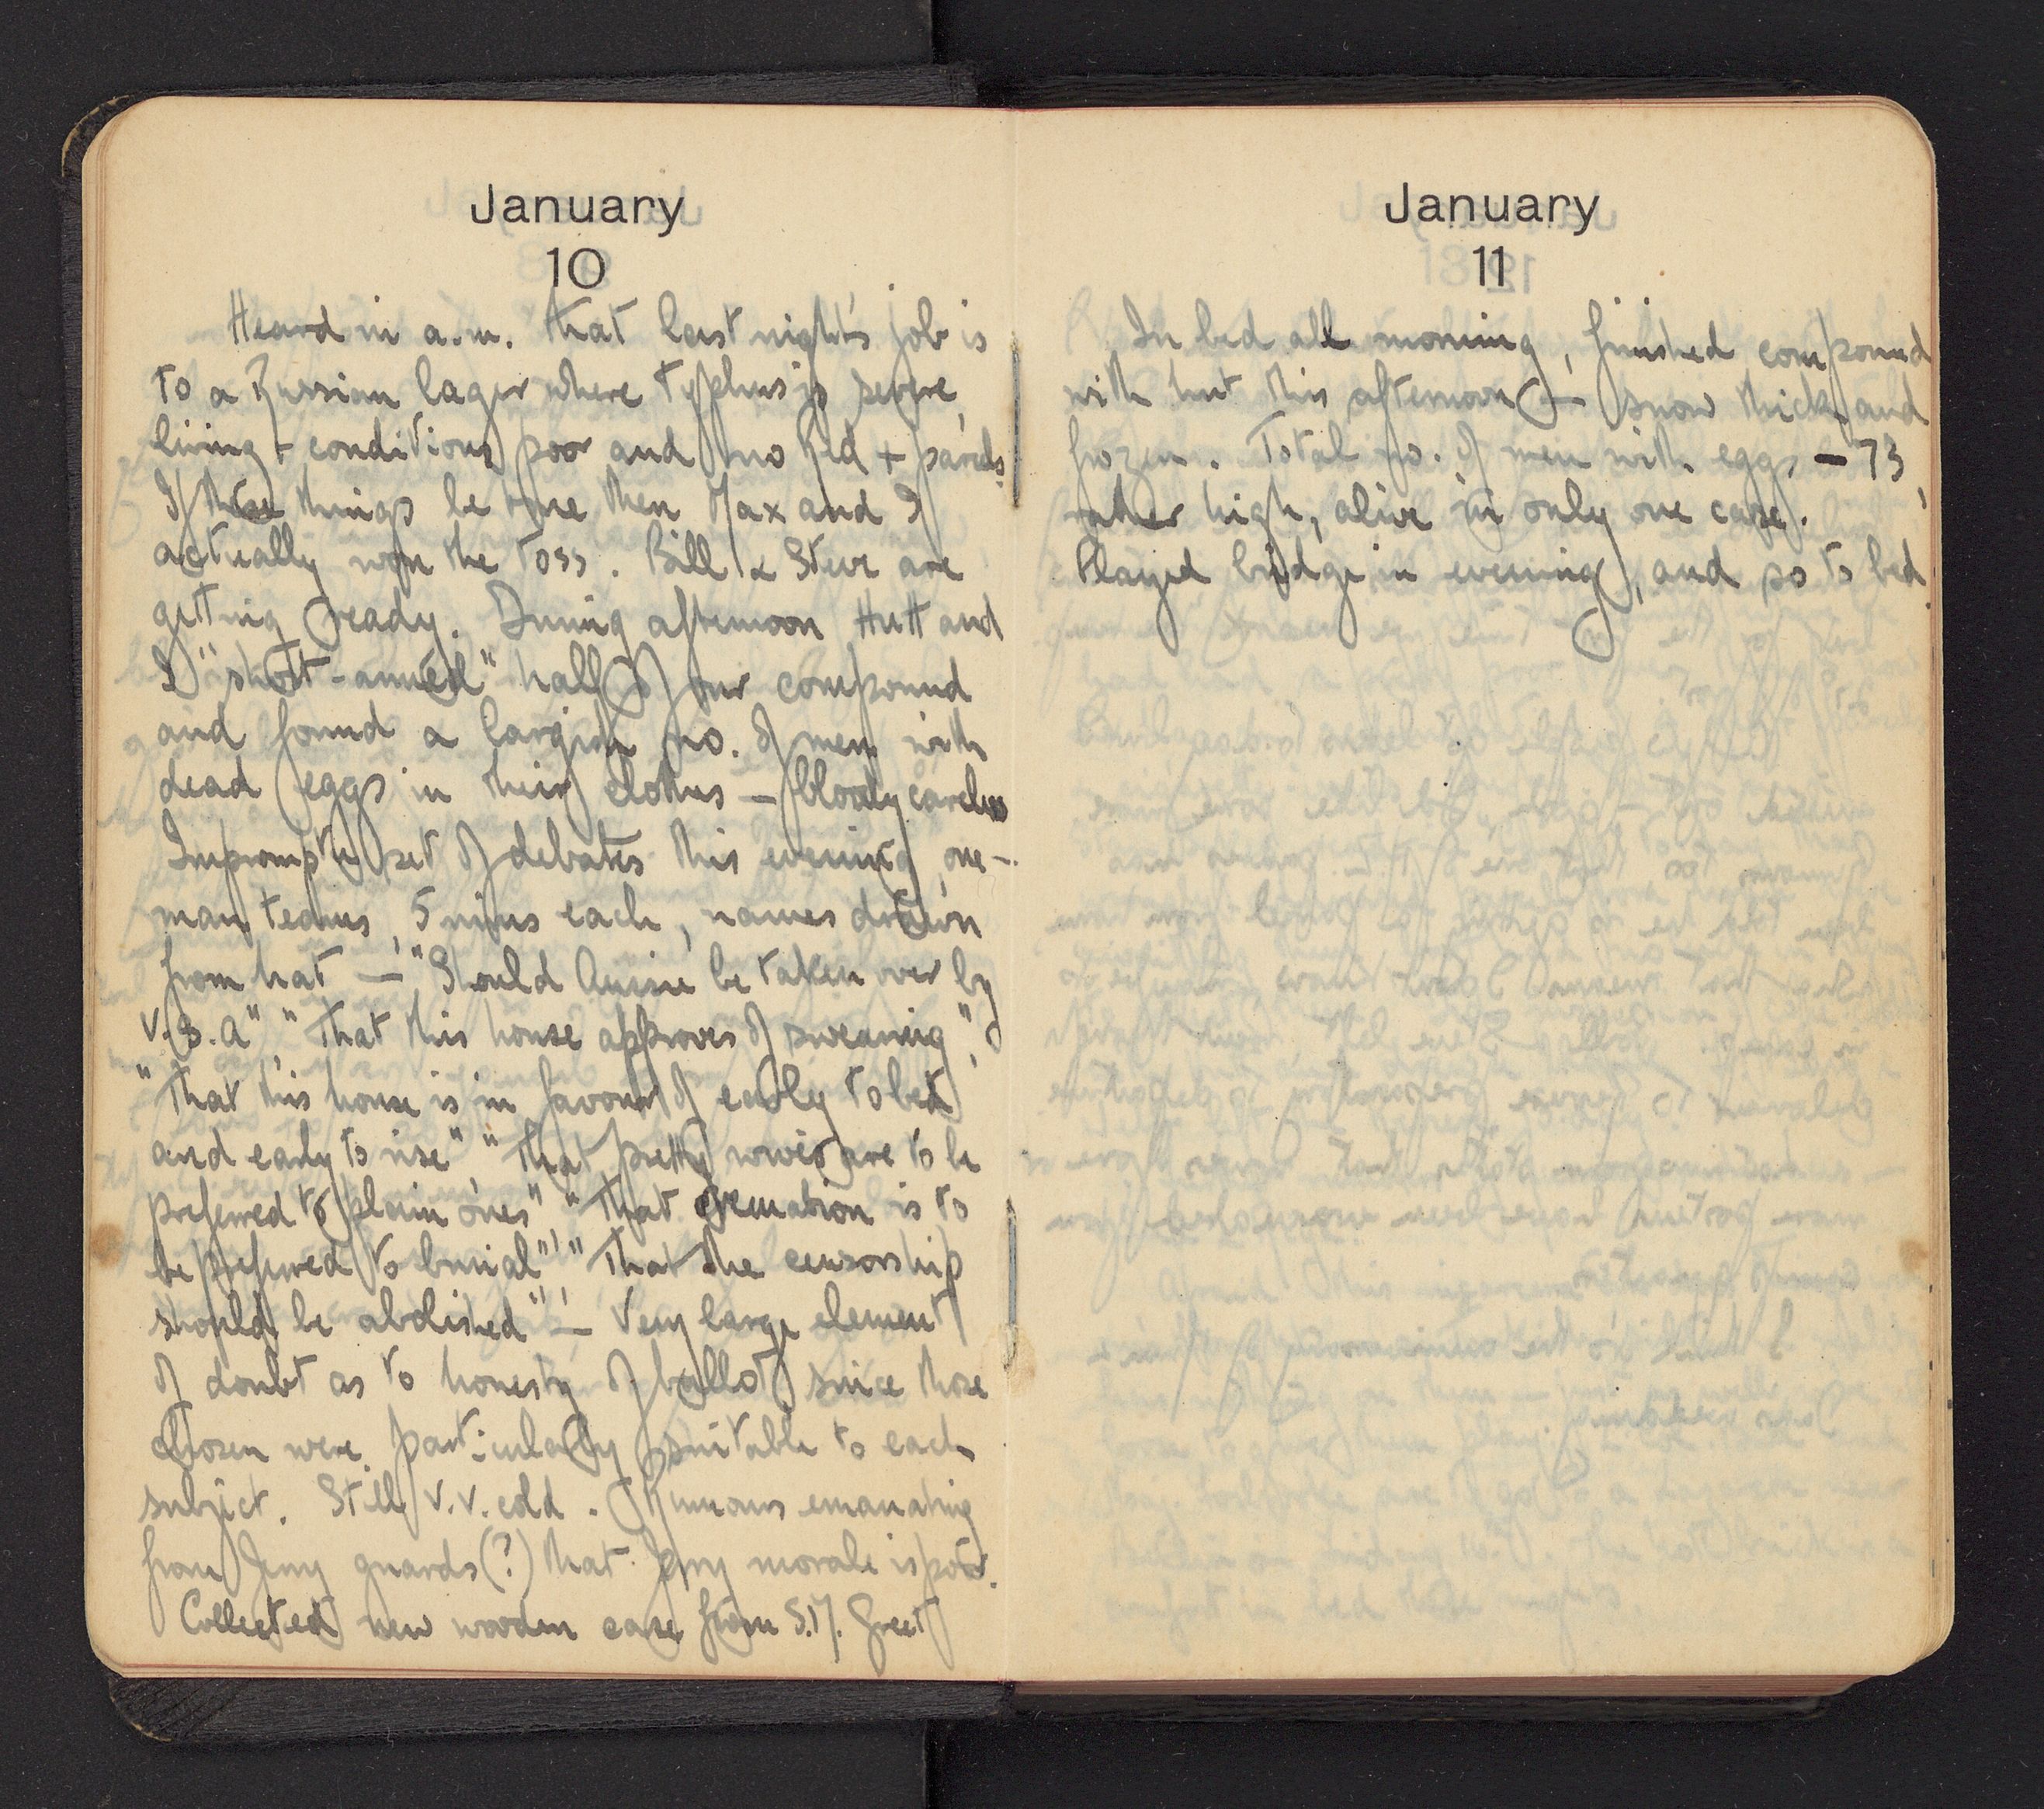 January
10
Heard in a.m. that last night's job is
to a Russian lager where typhus is severe,
living conditions poor and no Red + parcels.
If these things be true then Max and I
actually won the toss. Bill & Steve are
getting ready. During afternoon Hutt and
I "short-armed" half of our compound
and found a largish no. of men with
dead eggs in their clothes — bloody careless
Impromptu set of debates this evening, one-
man teams, 5 mins each, names drawn
from hat — "Should Aussie be taken over by
U.S.A", "That this house approves of swearing",
"That this house is in favour of early to bed
and early to rise", "That pretty wives are to be
preferred to plain ones", "That cremation is to
be preferred to burial", "That the censorship
should be abolished", — Very large element
of doubt as to honesty of ballot since those
chosen were particularly suitable to each
subject. Still v.v. cold. Rumours emanating
from Jerry guards (?) that Jerry morale is poor.
Collected new wooden case from S.M. Greet
January
11
In bed all morning, finished compound
with hut this afternoon — snow thick and
frozen. Total no. of men with eggs — 73,
rather high, alive in only one case.
Played bridge in evening, and so to bed.